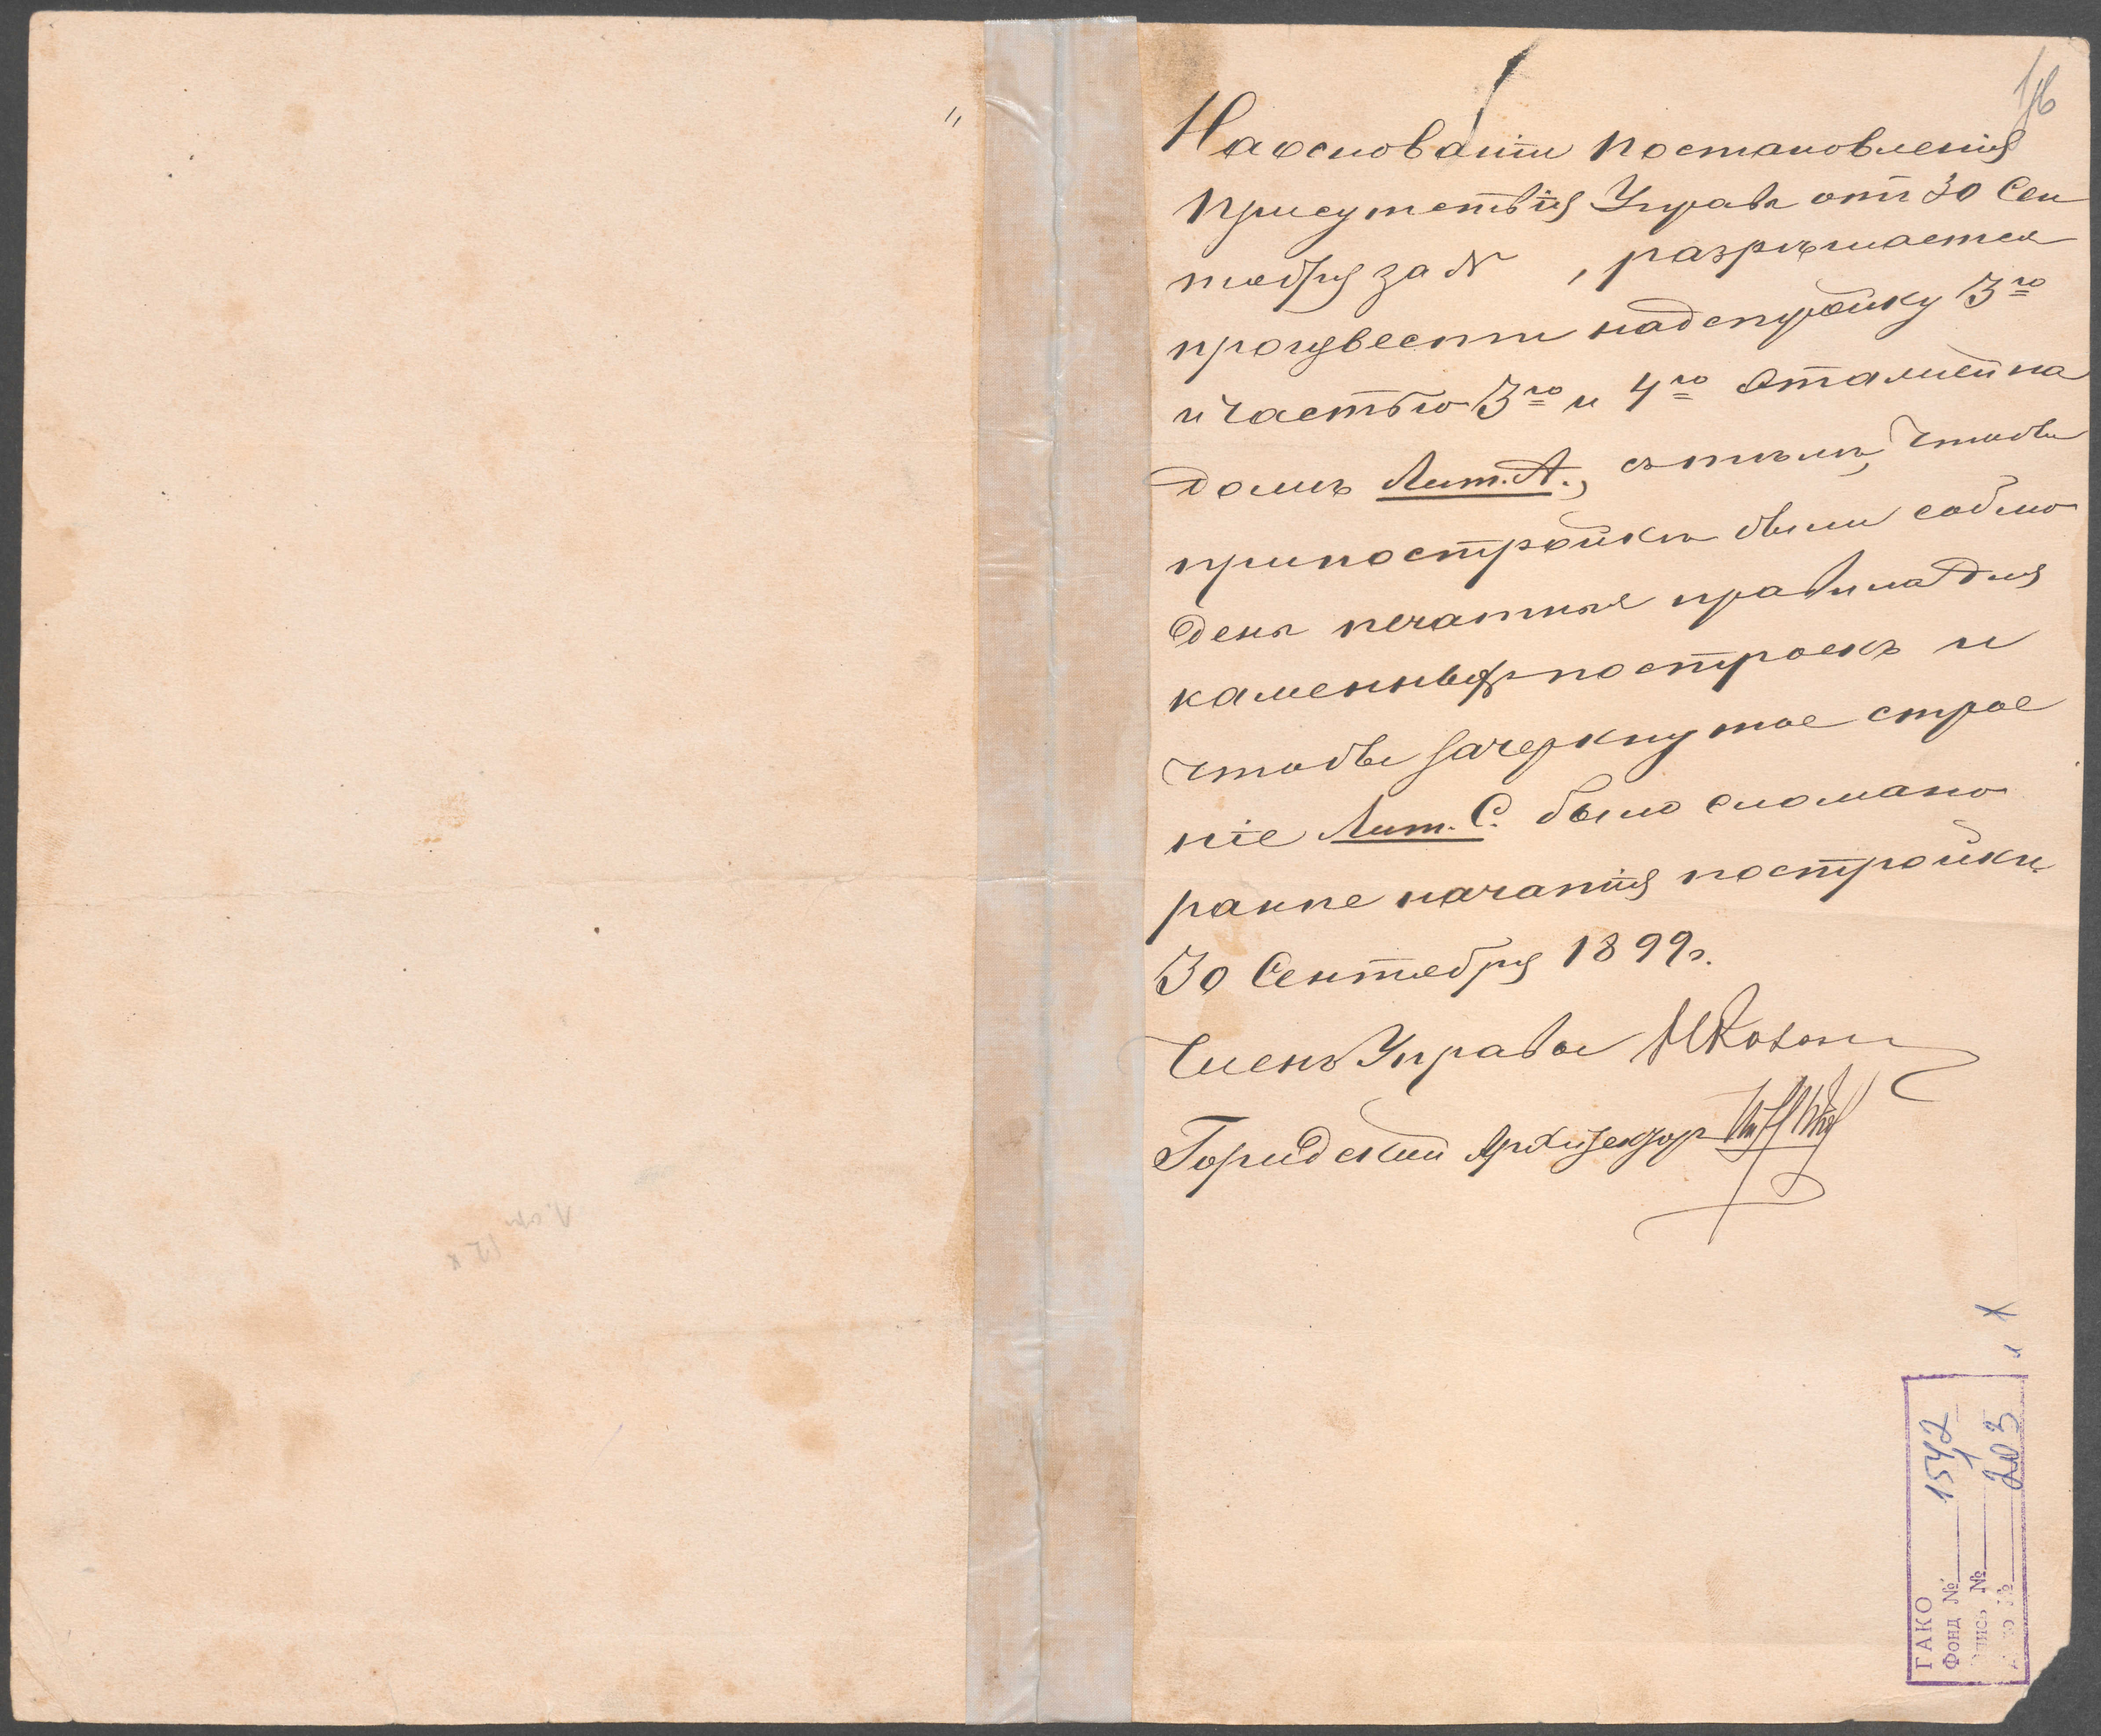 "
16
На основаніи постановленія
присутствія Управы отъ 30 Сен
тября за № , разрѣшается
произвести надстройку 3го
и частью 3го и 4го этажей на
домъ Лит. А., съ тѣмъ, чтобы
при постройкѣ были соблю
дены печатныя правила для
каменныхъ построекъ и
чтобы зачеркнутое строе
ніе Лит. С. было сломано
ранѣе начатія постройки.
30 Сентября 1899 г.
Членъ Управы
Городской Архитекторъ
ГАКО
Фонд № 1542
опись № 1
дело № 203